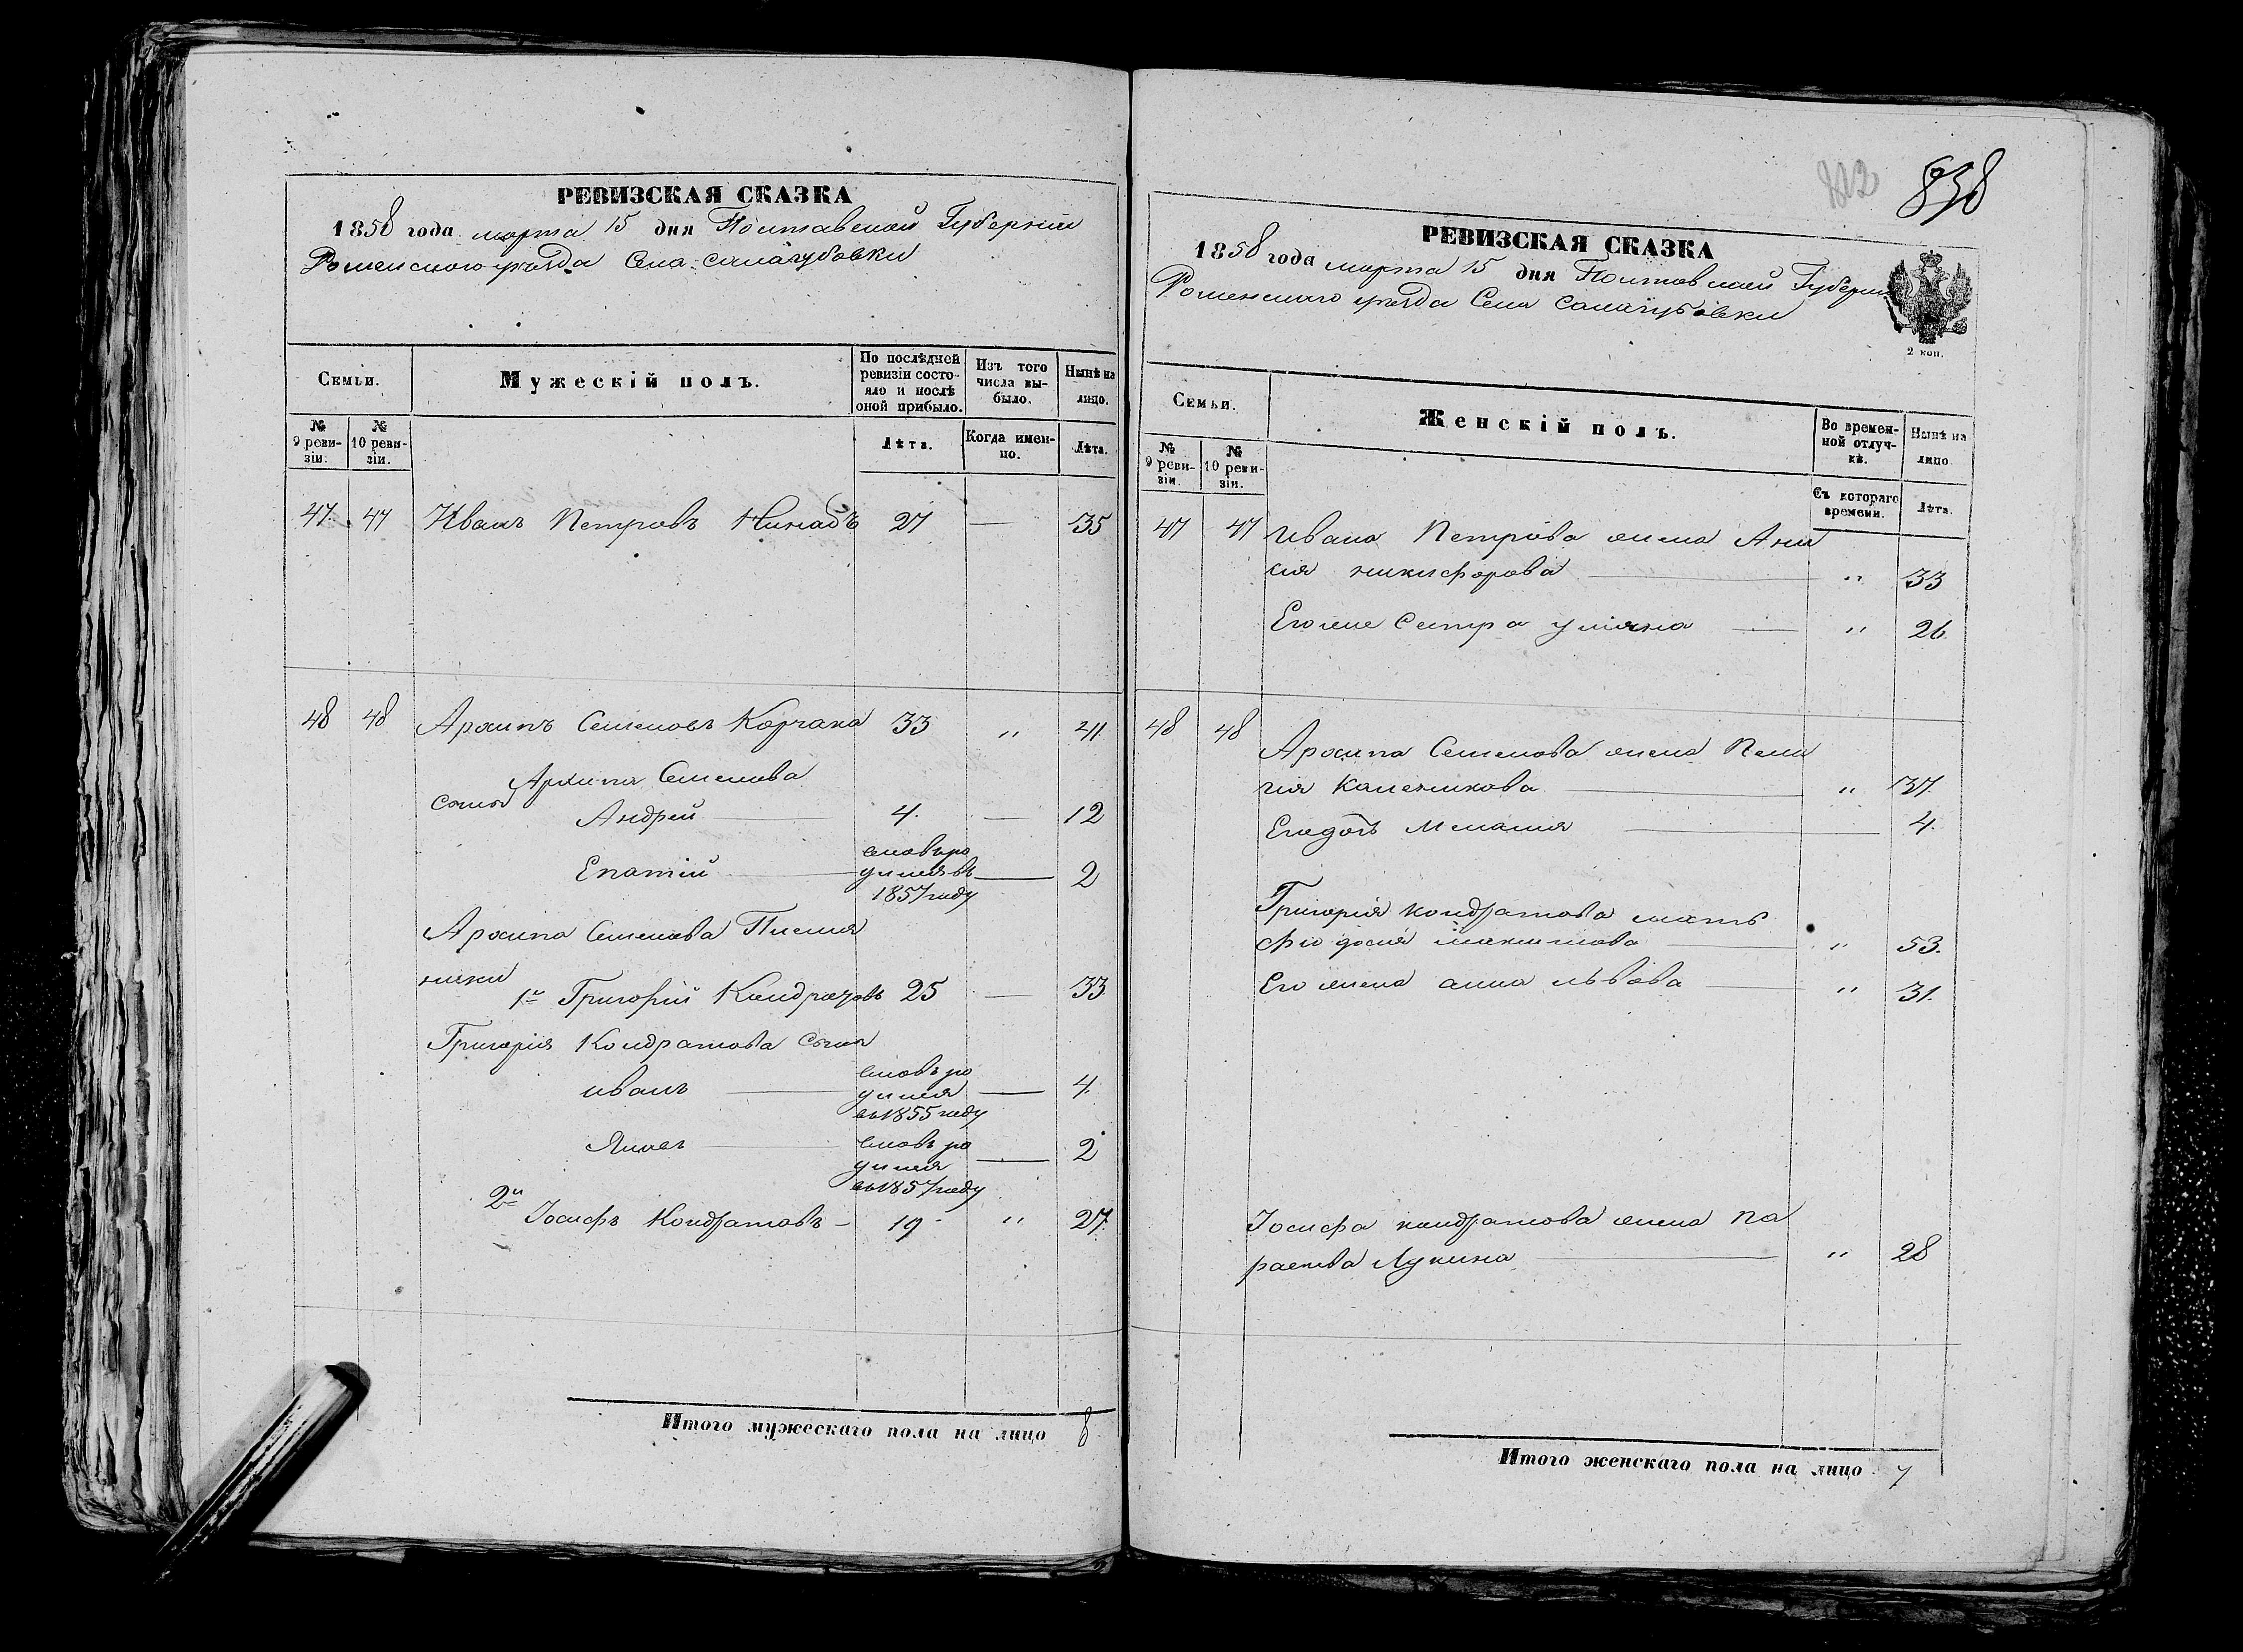 РЕВИЗСКАЯ СКАЗКА
1858 года марта 15 дня Полтавской Губернии
Роменского уезда Села Салагубовки
Семьи.
Мужескій полъ.
По послѣдней ревизіи состояло и послѣ оной прибыло.
Изъ того числа выбыло.
Нынѣ на лицо.
№ 9 ревизіи.
№ 10 ревизіи.
Лѣта.
Когда именно.
Лѣта.
47 47 Иванъ Петровъ 27 — 35
48 48 Архипъ Семеновъ Корчака 33 " 41
Архипа Семенова
сыновья
Андрей 4. — 12
Епатій новъро
дился въ — 2
1857 году
Архипа Семенова Племян
ники
1й Григорій Кондратовъ 25 — 33
Григорія Кондратова сыны
иванъ новъ ро
дился — 4
въ 1855 году
новъ ро
дился — 2
въ 1857 году
2й
Іосифъ Кондратовъ — 19 " 27.
Итого мужескаго пола на лицо 8
838
РЕВИЗСКАЯ СКАЗКА
1858 года марта 15 дня Полтавской Губернии
Роменскаго уезда Села Салагубовки
2 коп.
Семьи.
Женскій полъ.
Во временной отлучкѣ.
Нынѣ на лицо.
№ 9 ревизіи.
№ 10 ревизіи.
Съ котораго времени.
Лѣта.
47 47 ивана Петрова жена Ани
сия никифорова — " 33
Его же Сестра улияна — " 26.
48 48 Архипа Семенова жена Пела
гия — " 37.
Его дочь Мелания — 4.
Григорія кондратова мать
Фіодосия максимова — " 53.
Его жена анна львова — " 31.
Іосифа кондратова жена Па
раскева Лукина — " 28
Итого женскаго пола на лицо 7